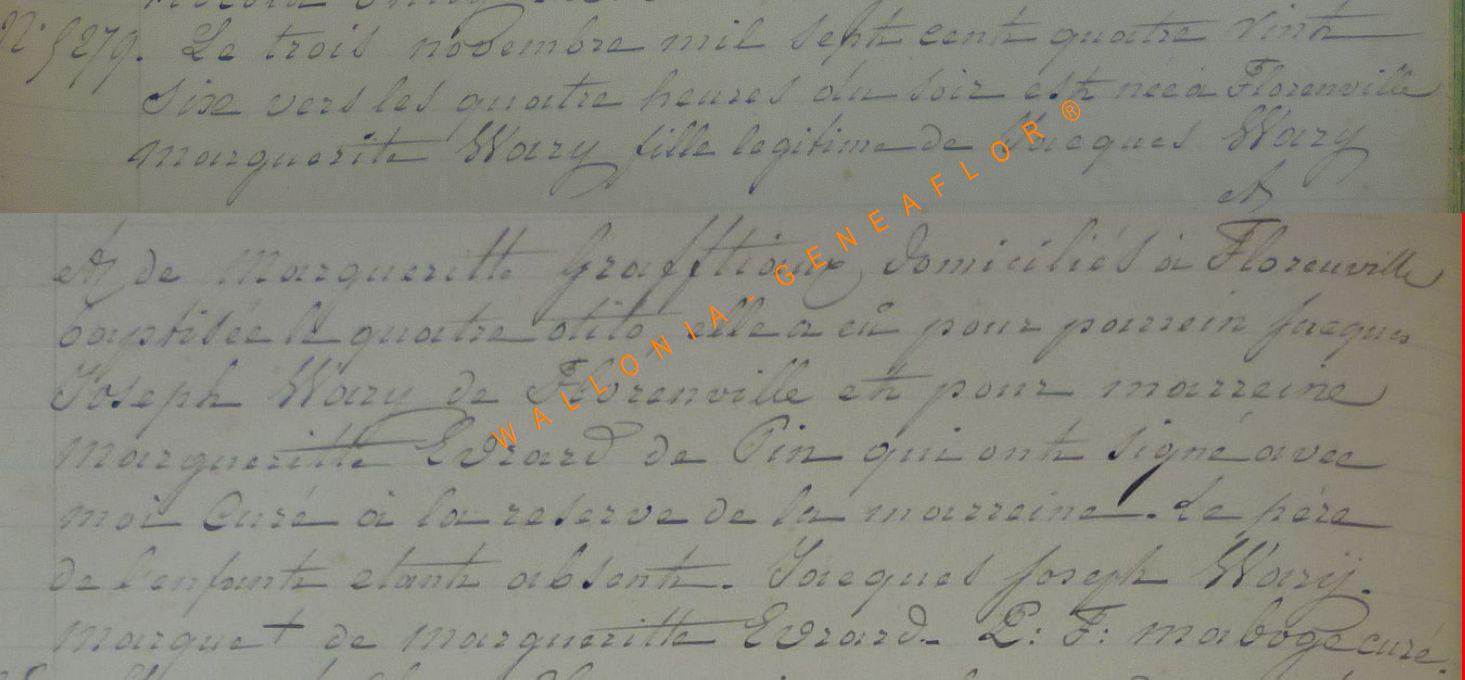 N° 5279. Le trois novembre mil sept cent quatre vint
sixe vers les quatre heures du soir est née à Florenville
marguerite Wary fille legitime de Jacques Wary
et
et de Margueritte Grafftiaux domiciliés à Florenville
baptisée le quatre dito elle a eû pour parrein Jacques
Joseph Wary de Florenville et pour marreine
margueritte Evrard de Pin qui ont signé avec
moi Curé à la reserve de la marreine. Le pere
de l'enfant etant absent. Jacques Joseph Wary.
marque + de margueritte Evrard. P: F: maboge curé.
WALLONIA - GENEAFLOR ®